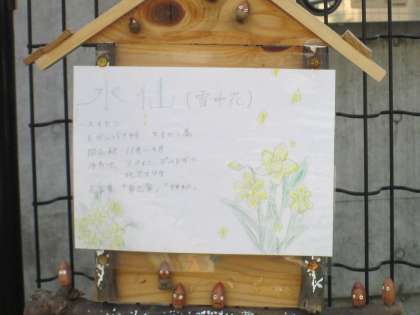 水仙（雪中花）
スイセン
ヒガンバナ科 スイセン属
開花期 11月～4月
原産地 スペイン、ポルトガル
地中海沿岸
花言葉「自己愛」、